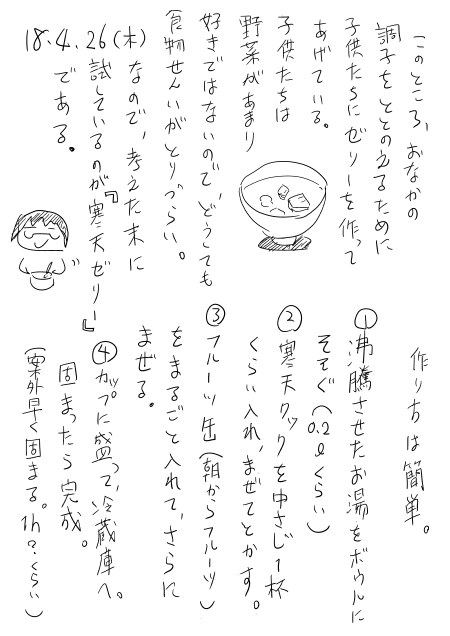 このところ、おなかの
調子をととのえるために
子供たちにゼリーを作って
あげている。
子供たちは
野菜があまり
好きではないので、どうしても
食物せんいがとりづらい。
18.4.26(木)
なので、考えた末に
試しているのが『寒天ゼリー』
である。
作り方は簡単。
①沸騰させたお湯をボウルに
そそぐ(0.2ℓくらい)
②寒天クックを中さじ1杯
くらい入れ、まぜてとかす。
③フルーツ缶(朝からフルーツ)
をまるごと入れて、さらに
まぜる。
④カップに盛って、冷蔵庫へ。
固まったら完成。
(案外早く固まる。1h?くらい)